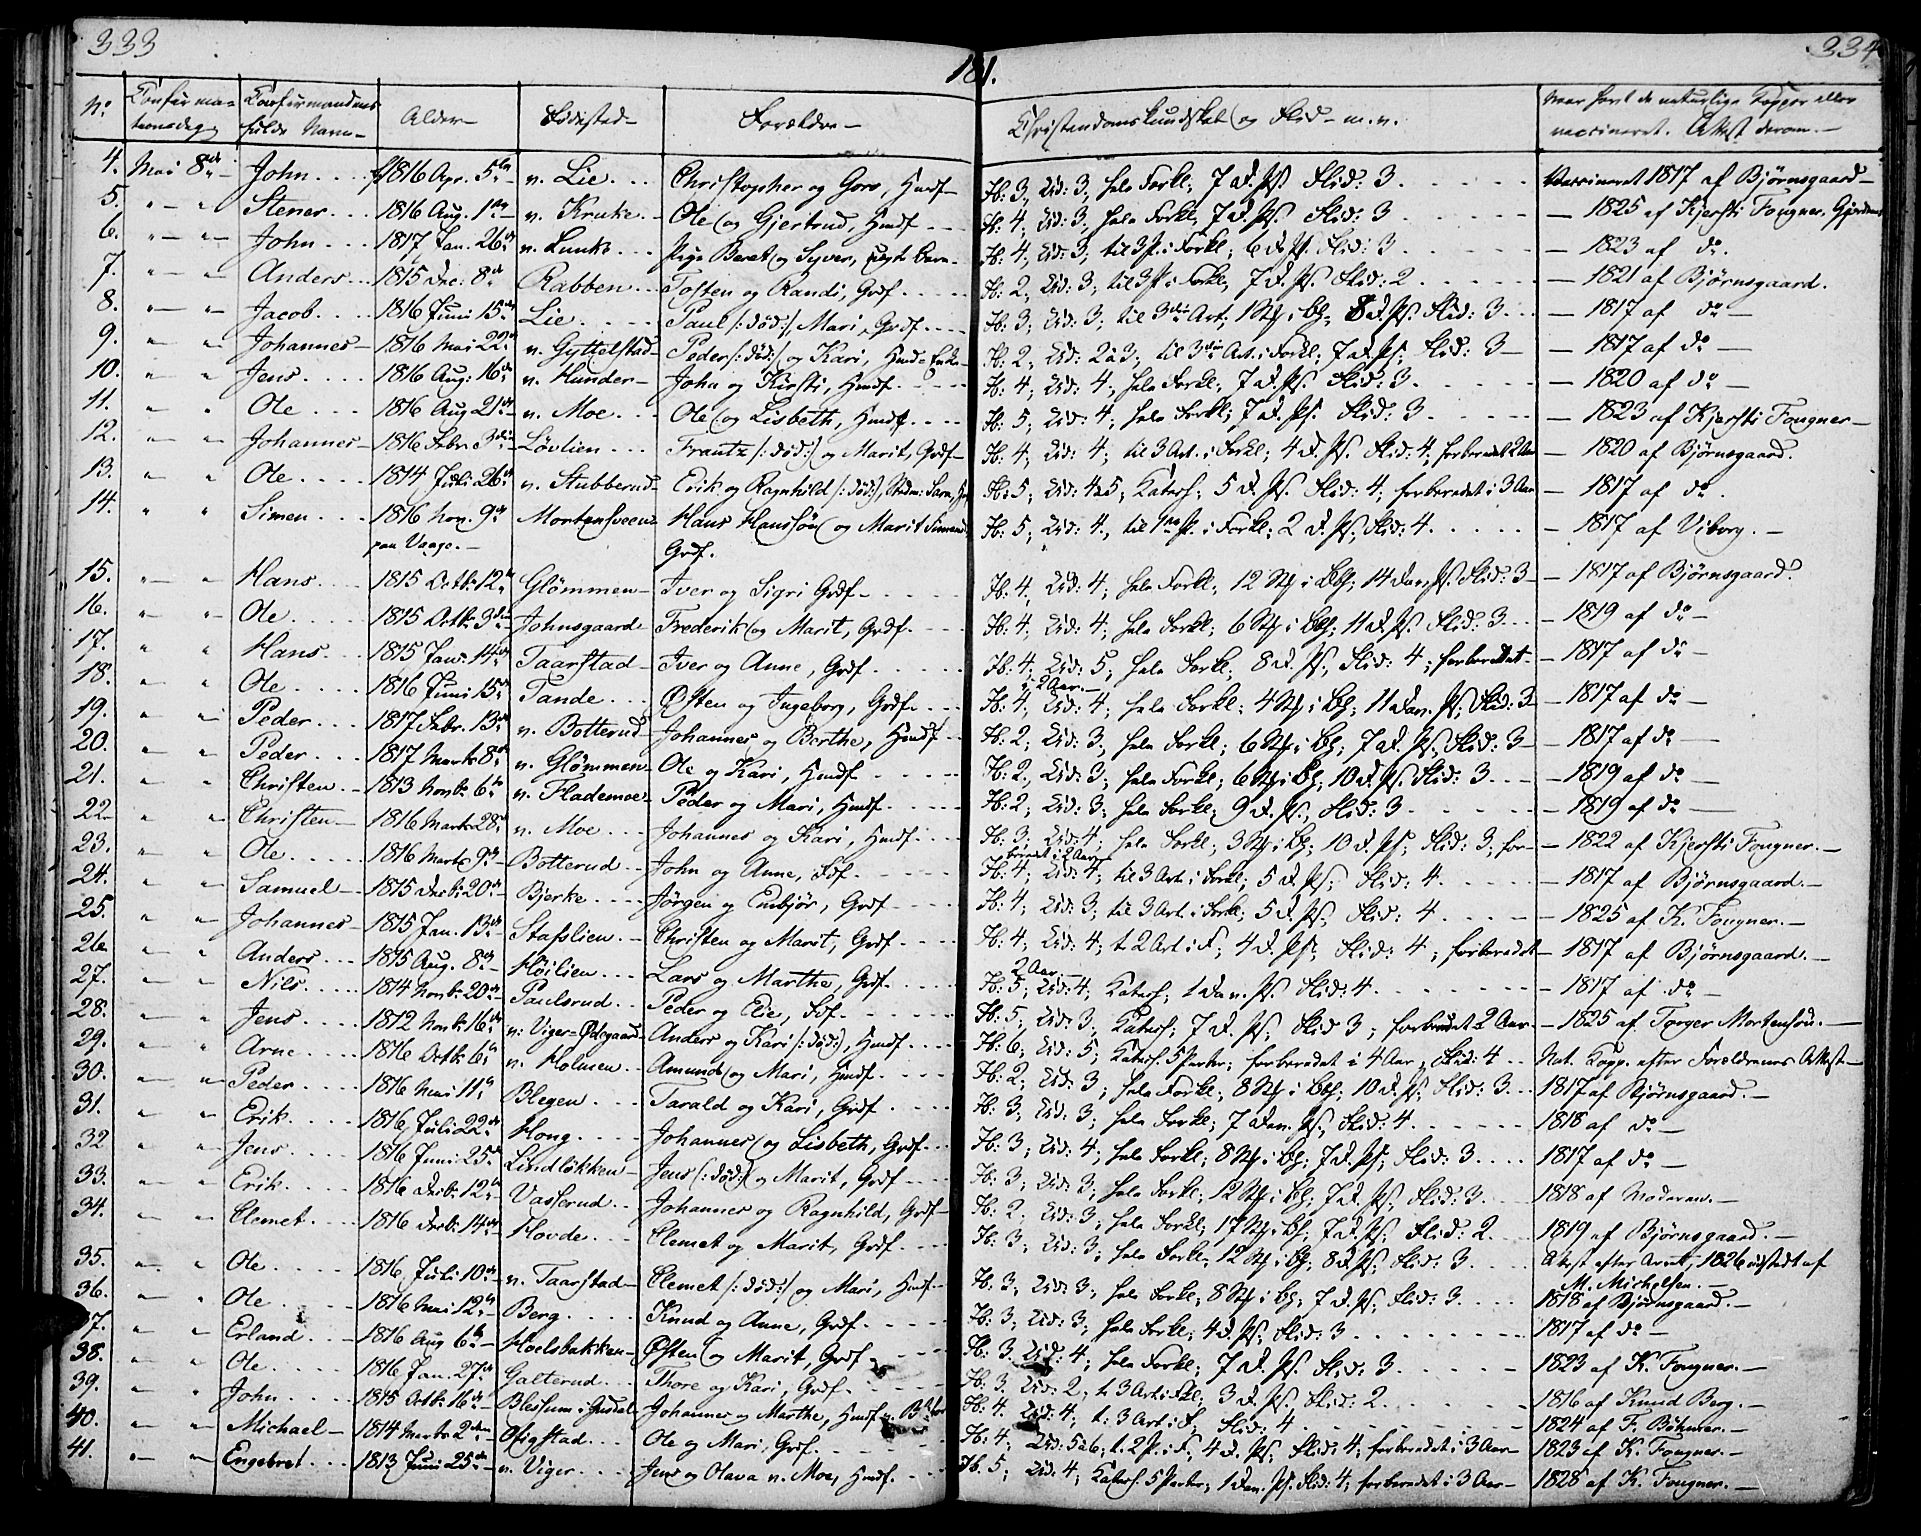 333
334
181.
No
Confirmationsdag
Confirmandens fulde Navn
Alder
Fødested
Forældre
Christendomskundskab og Flid m.v.
Naar havt de naturlige Kopper eller vaccineret. Attest derom.
4. Mai 8de John 1816 Apr. 5te n. Lie Christopher og Goro, Husf. H: 3, Ud: 3, hele Forkl; 7 D. Ps. Flid: 3 Vaccineret 1817 af Bjørnsgaard
5. " " Stener 1816 Aug. 1ste n. Kruke Ole og Gjertrud, Husf. H: 4, Ud: 3, hele Forkl; 7 D. Ps. Flid: 3 — 1825 af Kjersti Fougner,
6. " " John 1817 Jan. 26de n. Lunke Pige Beret og Syver, H: 4, Ud: 3, til 3 P. i Forkl; 6 D. Ps. Flid: 3 — 1823 af do
7. " " Anders 1815 Dec. 8de Rabben Tosten og Randi, Grdf. H: 2, Ud: 3, til 3 P. i Forkl, 7 D. Ps. Flid: 2 — 1821 af Bjørnsgaard.
8. " " Jacob 1816 Juni 15de Lie Paul /: død:/ Mari, Grdf. H: 3; Ud: 3; til 3die Art, 1 St. i Bh; 8 D. Ps. Flid: 3 — 1817 af do
9. " " Johannes 1816 Mai 22de n. Gyttelstad Peder /: død:/ og Kari, Husf. Enke H: 2, Ud: 2a3; til 3die Art. i Forkl; 7 D. Ps. Flid: 3 — 1817 af do
10. " " Jens 1816 Aug: 16de n. Hunder John og Kirsti, Husf. H: 4; Ud: 4, hele Forkl; 7 D. Ps. Flid: 3 — 1820 af do
11. " " Ole 1816 Aug 21de n. Moe Ole og Lisbeth, Husf. H: 5, Ud: 4, hele Forkl; 7 D. Ps. Flid: 3 — 1823 af Kjersti Fougner
12. " " Johannes 1816 Febr. 3die Løvlien Frantz /: død:/ og Marit, Grdf. H: 4, Ud: 4; til 3 Art. i Forkl; 4 D. Ps. Flid: 4, forberedt 2 Aar — 1820 af Bjørnsgaard.
13. " " Ole 1814 Juli 26de n. Stubberud Erik og Ragnhild /: død:/, H: 5; Ud: 4a5, Katech; 5 D. Ps. Flid: 4; forberedet i 3 Aar — 1817 af do
14. " " Simen 1816 Nov. 9de Mortensveen Hans Hanssøn og Marit H: 5, Ud: 4, til 1ste P. i Forkl; 2 D. Ps, Flid: 4 — 1817 af Viborg.
paa Vaage. Grdf.
15. " " Hans 1815 Octb. 12te Glömmen Iver og Sigri Grdf. H: 4, Ud: 4, hele Forkl; 12 St. i Bh; 14 Dav. Ps. Flid: 3 — 1817 af Bjørnsgaard.
16. " " Ole 1815 Octb. 3die Johnsgaard Frederik og Marit, Grdf. H: 4, Ud: 4, hele Forkl; 6 St. i Bh; 11 D. Ps. Flid: 3 — 1819 af do
17. " " Hans 1815 Jan: 14de Taarstad Iver og Anne, Grdf. H: 4, Ud: 5, hele Forkl, 8 D. Ps; Flid: 4; forberedet i 2 Aar. — 1817 af do
18. " " Ole 1816 Juni 15de Tande Østen og Ingeborg, Grdf. H: 4, Ud: 4, hele Forkl; 4 St. i Bh; 11 Dav. Ps; Flid: 3 — 1817 af do
19. " " Peder 1817 Febr. 13de n. Botterud Johannes og Berthe, Husf. H: 2, Ud: 3, hele Forkl; 6 St. i Bh; 7 D. Ps, Flid: 3 — 1817 af do
20. " " Peder 1817 Marts 8de n. Glömmen Ole og Kari, Husf. H: 2, Ud: 3; hele Forkl; 6 St. i Bh; 10 D. Ps. Flid: 3 — 1819 af do
21. " " Christen 1813 Novb. 6te n. Flademoe Peder og Mari, Husf. H: 2; Ud: 3; hele Forkl; 9 D. Ps; Flid: 3 — 1819 af do
22. " " Christen 1816 Marts 28de n. Moe Johannes og Kari, Husf. H: 3, Ud: 4, hele Forkl, 3 St. i Bh; 10 D. Ps; Flid: 3, forberedt i 2 Aar — 1822 af Kjersti Fougner.
23. " " Ole 1816 Marts 9de Botterud John og Anne, H: 4, Ud: 4, til 3 Art. i Forkl; 5 D. Ps; Flid: 4 — 1817 af Bjørnsgaard.
24. " " Samuel 1815 Decb. 20de Bjerke Jørgen og Embjør, Grdf H: 4, Ud: 3; til 3 Art. i Forkl; 5 D. Ps; Flid: 4 — 1825 af K. Fougner.
25. " " Johannes 1815 Jan. 13de Stafslien Christen og Marit, Grdf. H: 4, Ud: 4; t. 2 Art i F; 4 D. Ps; Flid: 4; forberedet 2 Aar. — 1817 af Bjørnsgaard.
26. " " Anders 1815 Aug. 8de Høilien Lars og Marthe, Grdf. H: 5; Ud: 4; Katech; 1 Dav. Ps. Flid: 4 — 1817 af do
27. " " Nils 1814 Novb. 20de Paulsrud Peder og Elie, H: 5; Ud: 3; Katech; 7 D. Ps; Flid 3; forberedet 2 Aar. — 1825 af Torger Mortensøn.
28. " " Jens 1812 Novb. 16de n: Viger-Ødegaard Anders og Kari /: død:/, Husf. H: 6; Ud: 5; Katech. 5 Parter, forberedet i 4 Aar; Flid: 4 Nat. Kopp. efter Forældrenes Attest
29. " " Arne 1816 Octb. 6te n. Holmen Amund og Mari, Husf. H: 2; Ud: 3; hele Forkl; 8 St. i Bh; 10 D. Ps; Flid: 3 1817 af Bjørnsgaard.
30. " " Peder 1816 Mai 11te Blegen Tarald og Kari, Grdf. H: 3, Ud: 3; hele Forkl; 7 Dav. Ps; Flid: 4 1818 af do
31. " " Erik 1816 Juli 22de Houg Johannes og Lisbeth, Grdf. H: 3; Ud: 4; hele Forkl; 8 St. i Bh; 7 D. Ps; Flid: 3 1817 af do
32. " " Jens 1816 Juni 25de Lindløkken Jens /: død:/ og Marit, Grdf H: 3, Ud: 3, hele Forkl; 12 St. i Bh; 7 D. Ps; Flid: 3 1818 af
33. " " Erik 1816 Decb. 12te Vasserud Johannes og Ragnhild, Grdf. H: 2, Ud: 3, hele Forkl; 17 St. i Bh; 7 D. Ps; Flid: 2 1819 af Bjørnsgaard.
34. " " Clemet 1816 Decb. 14de Hovde Clemet og Marit, Grdf. H: 3, Ud: 3; hele Forkl; 12 St. i Bh; 8 D. Ps; Flid: 3 Attest efter Arret, 1826 udstedt af M. Michelsen.
35. " " Ole 1816 Juli 10de n. Taarstad Clemet /: død:/ og Mari, Husf. H: 3, Ud: 3, hele Forkl; 8 St. i Bh; 7 D. Ps; Flid: 3 1818 af Bjørnsgaard.
36. " " Ole 1816 Mai 12te Berg Knud og Anne, Grdf. H: 3; Ud: 3, hele Forkl; 4 D. Ps; Flid: 3 1817 af do
37. " " Erland 1816 Aug 6te Hoelsbakken Østen og Marit, Grdf. H: 3, Ud: 4, hele Forkl; 7 D. Ps. Flid: 3 1823 af K. Fougner.
38. " " Ole 1816 Jan. 27de Galterud Thore og Kari, Grdf. H: 3. Ud: 2, t. 3 Art i Fkl; 3 D. Ps; Flid: 2 1816 af Knud Berg.
39. " " John 1815 Octb. 16de Blessum i Gusdal Johannes og Marthe, Husf. H: 4. Ud: 4, t: 3 Art i F. Flid: 4 1824 af F. Böhmer.
40. " " Michael 1814 Marts 2den Øigstad Ole og Mari, Grdf. H: 4, Ud: 5a6, t. 2 P. i F; 4 D. Ps; Flid: 4; forberedet i 3 Aar 1823 af K. Fougner.
41. " " Engebret 1813 Juni 25de n. Viger Jens og Olava n. Moe, Husf. H: 5, Ud: 4; Katech. 5 Parter; 1 Dav. Ps. Flid: 4; forberedet i 3 Aar 1828 af K. Fougner.